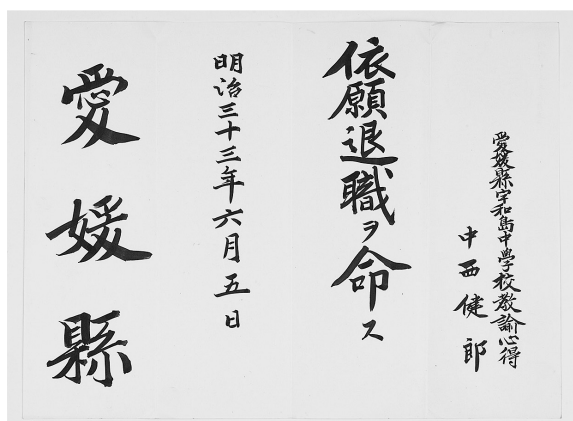 愛媛縣宇和島中學校教諭心得
中西健郎
依願退職ヲ命ス
明治三十三年六月五日
愛媛縣